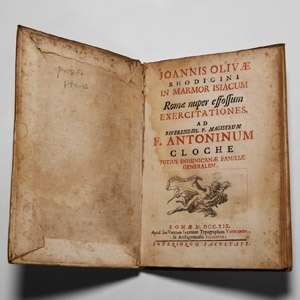 JOANNIS OLIVÆ
RHODIGINI
IN MARMOR ISIACUM
Romæ nuper effossum
EXERCITATIONES,
AD
REVERENDISS. P. MAGISTRUM
F. ANTONINUM
CLOCHE
TOTIUS DOMINICANÆ FAMILIÆ
GENERALEM.
ROMÆ M. DCC. XIX.
Typographum
In Archigymnasio
SUPERIORUM FACULTATE.